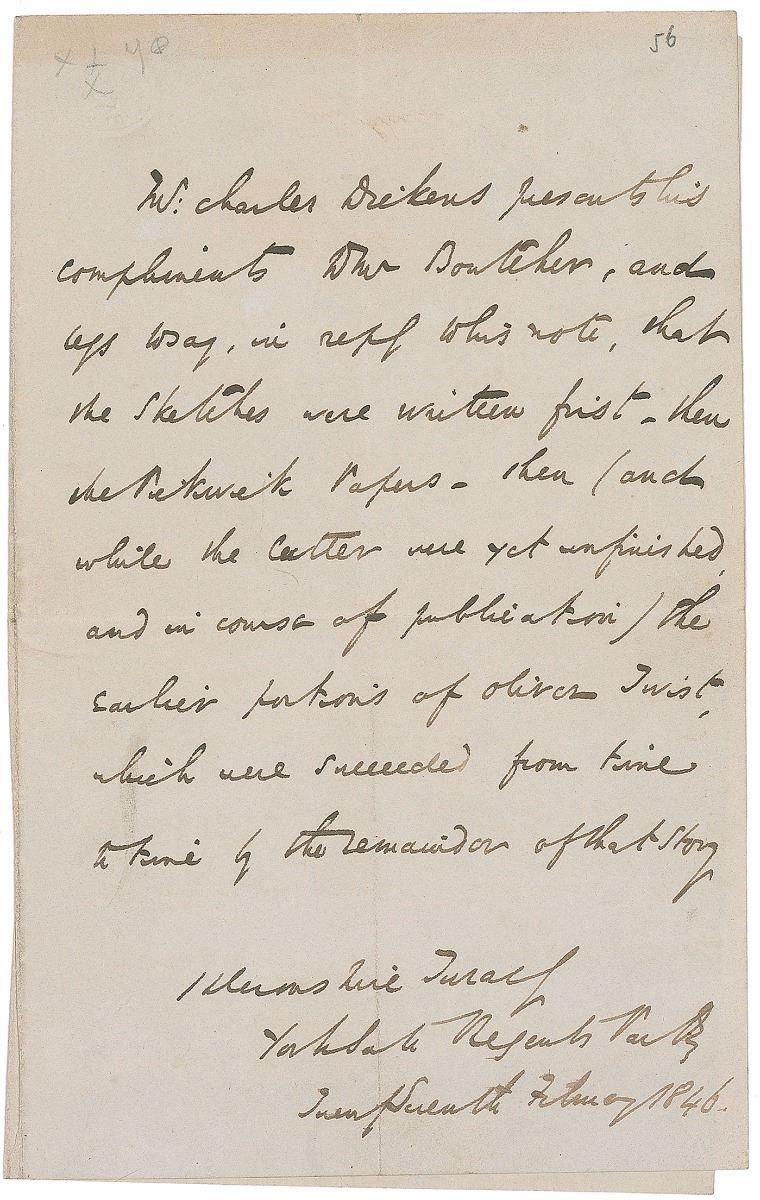 56
Mr. Charles Dickens presents his
compliments to Mr Boutcher, and
begs to say, in reply to his note, that
the Sketches were written first – then
the Pickwick Papers – then (and
while the latter were yet unfinished,
and in course of publication) the
earlier portions of Oliver Twist,
which were succeeded from time
to time by the remainder of that story
1 Devonshire Terrace
York Gate Regents Park
Twenty Seventh February 1846.